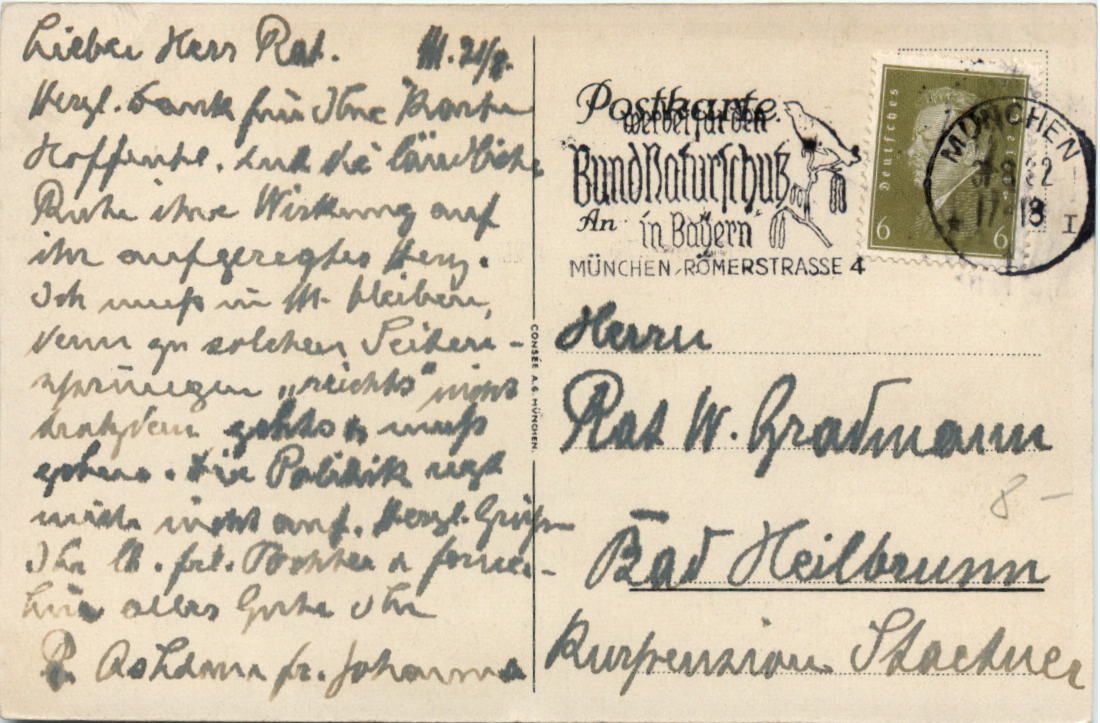 Lieber Herr Rat. M. 31/8.
Herzl. Dank für Ihre Karte
Hoffentl. hat die ländliche
Ruhe ihre Wirkung auf
ihr aufgeregtes Herz.
Ich muß in M. bleiben,
denn zu solchen Seiten-
sprüngen „reichts" nicht
trotzdem gehts & muß
gehen. Die Politik regt
mich nicht auf. Herzl. Grüße
Ihr lb. frl. Tochter & ferner-
hin alles Gute Ihr
Johanna
Postkarte
Werbet für den
Bund Naturschutz
An in Bayern
MÜNCHEN, RÖMERSTRASSE 4
Deutsches
6 6
MÜNCHEN
17-18
I
CONSÉE A.G. MÜNCHEN.
Herrn
Rat W. Gradmann
8 –
Bad Heilbrunn
Kurpension Stachner